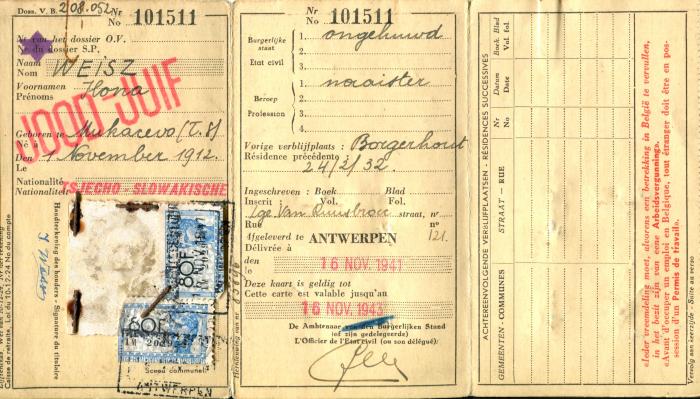 Doss. V. B. 208.052
Nr
No 101511
Nr van het dossier O.V.
No du dossier S.P.
Naam
Nom WEISZ
Voornamen
Prénoms Ilona
JOOD-JUIF
Geboren te Mukacevo (T.S)
Né à
Den 1 November 1912.
Le
Nationaliteit
TSJECHO-SLOWAKISCHE
Handteekening van den houder - Signature du titulaire
80F
80F
Sceau communal
ANTWERPEN
Caisse de retraite. Loi du 10-12-24 No du compte
Nr
No 101511
Burgerlijke
staat
Etat civil
1. ongehuwd
2.
3.
Beroep
Profession
1. naaister
2.
3.
4.
Vorige verblijfplaats : Borgerhout
Résidence précédente : 24/2/32.
Ingeschreven : Boek Blad
Inscrit : Vol. Fol.
straat, nr
Rue no 121.
Afgeleverd te
Délivrée à ANTWERPEN
den
le 16 NOV. 1941
Deze kaart is geldig tot
Cette carte est valable jusqu'au
16 NOV. 1943
De Ambtenaar van den Burgerlijken Stand
(of zijn gedelegeerde)
L'Officier de l'Etat civil (ou son délégué):
ACHTEREENVOLGENDE VERBLIJFPLAATSEN - RESIDENCES SUCCESSIVES
GEMEENTEN - COMMUNES
STRAAT - RUE
Nr
No
Datum
Date
Boek Blad
Vol. fol.
«Ieder vreemdeling moet, alvorens eene betrekking in België te vervullen,
in het bezit zijn van eene Arbeidsvergunning».
«Avant d'occuper un emploi en Belgique, tout étranger doit être en pos-
session d'un Permis de travail».
Vervolg aan keerzijde - Suite au verso